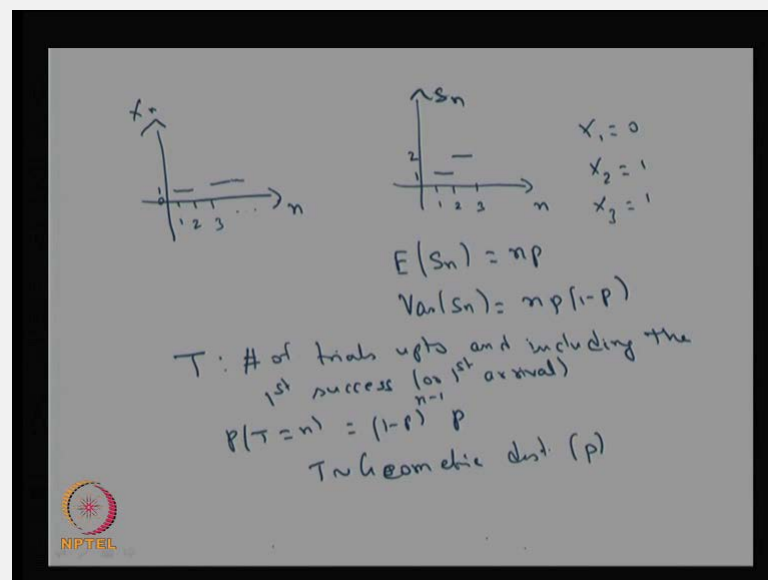 Xn
1
0
1 2 3 ... n
Sn
2
1
1 2 3 n
X₁ = 0
X₂ = 1
X₃ = 1
E(Sn) = np
Var(Sn) = np(1-p)
T : # of trials upto and including the
1st success (or 1st arrival)
P(T = n) = (1-p)ⁿ⁻¹ p
T ~ Geometric dist. (p)
NPTEL